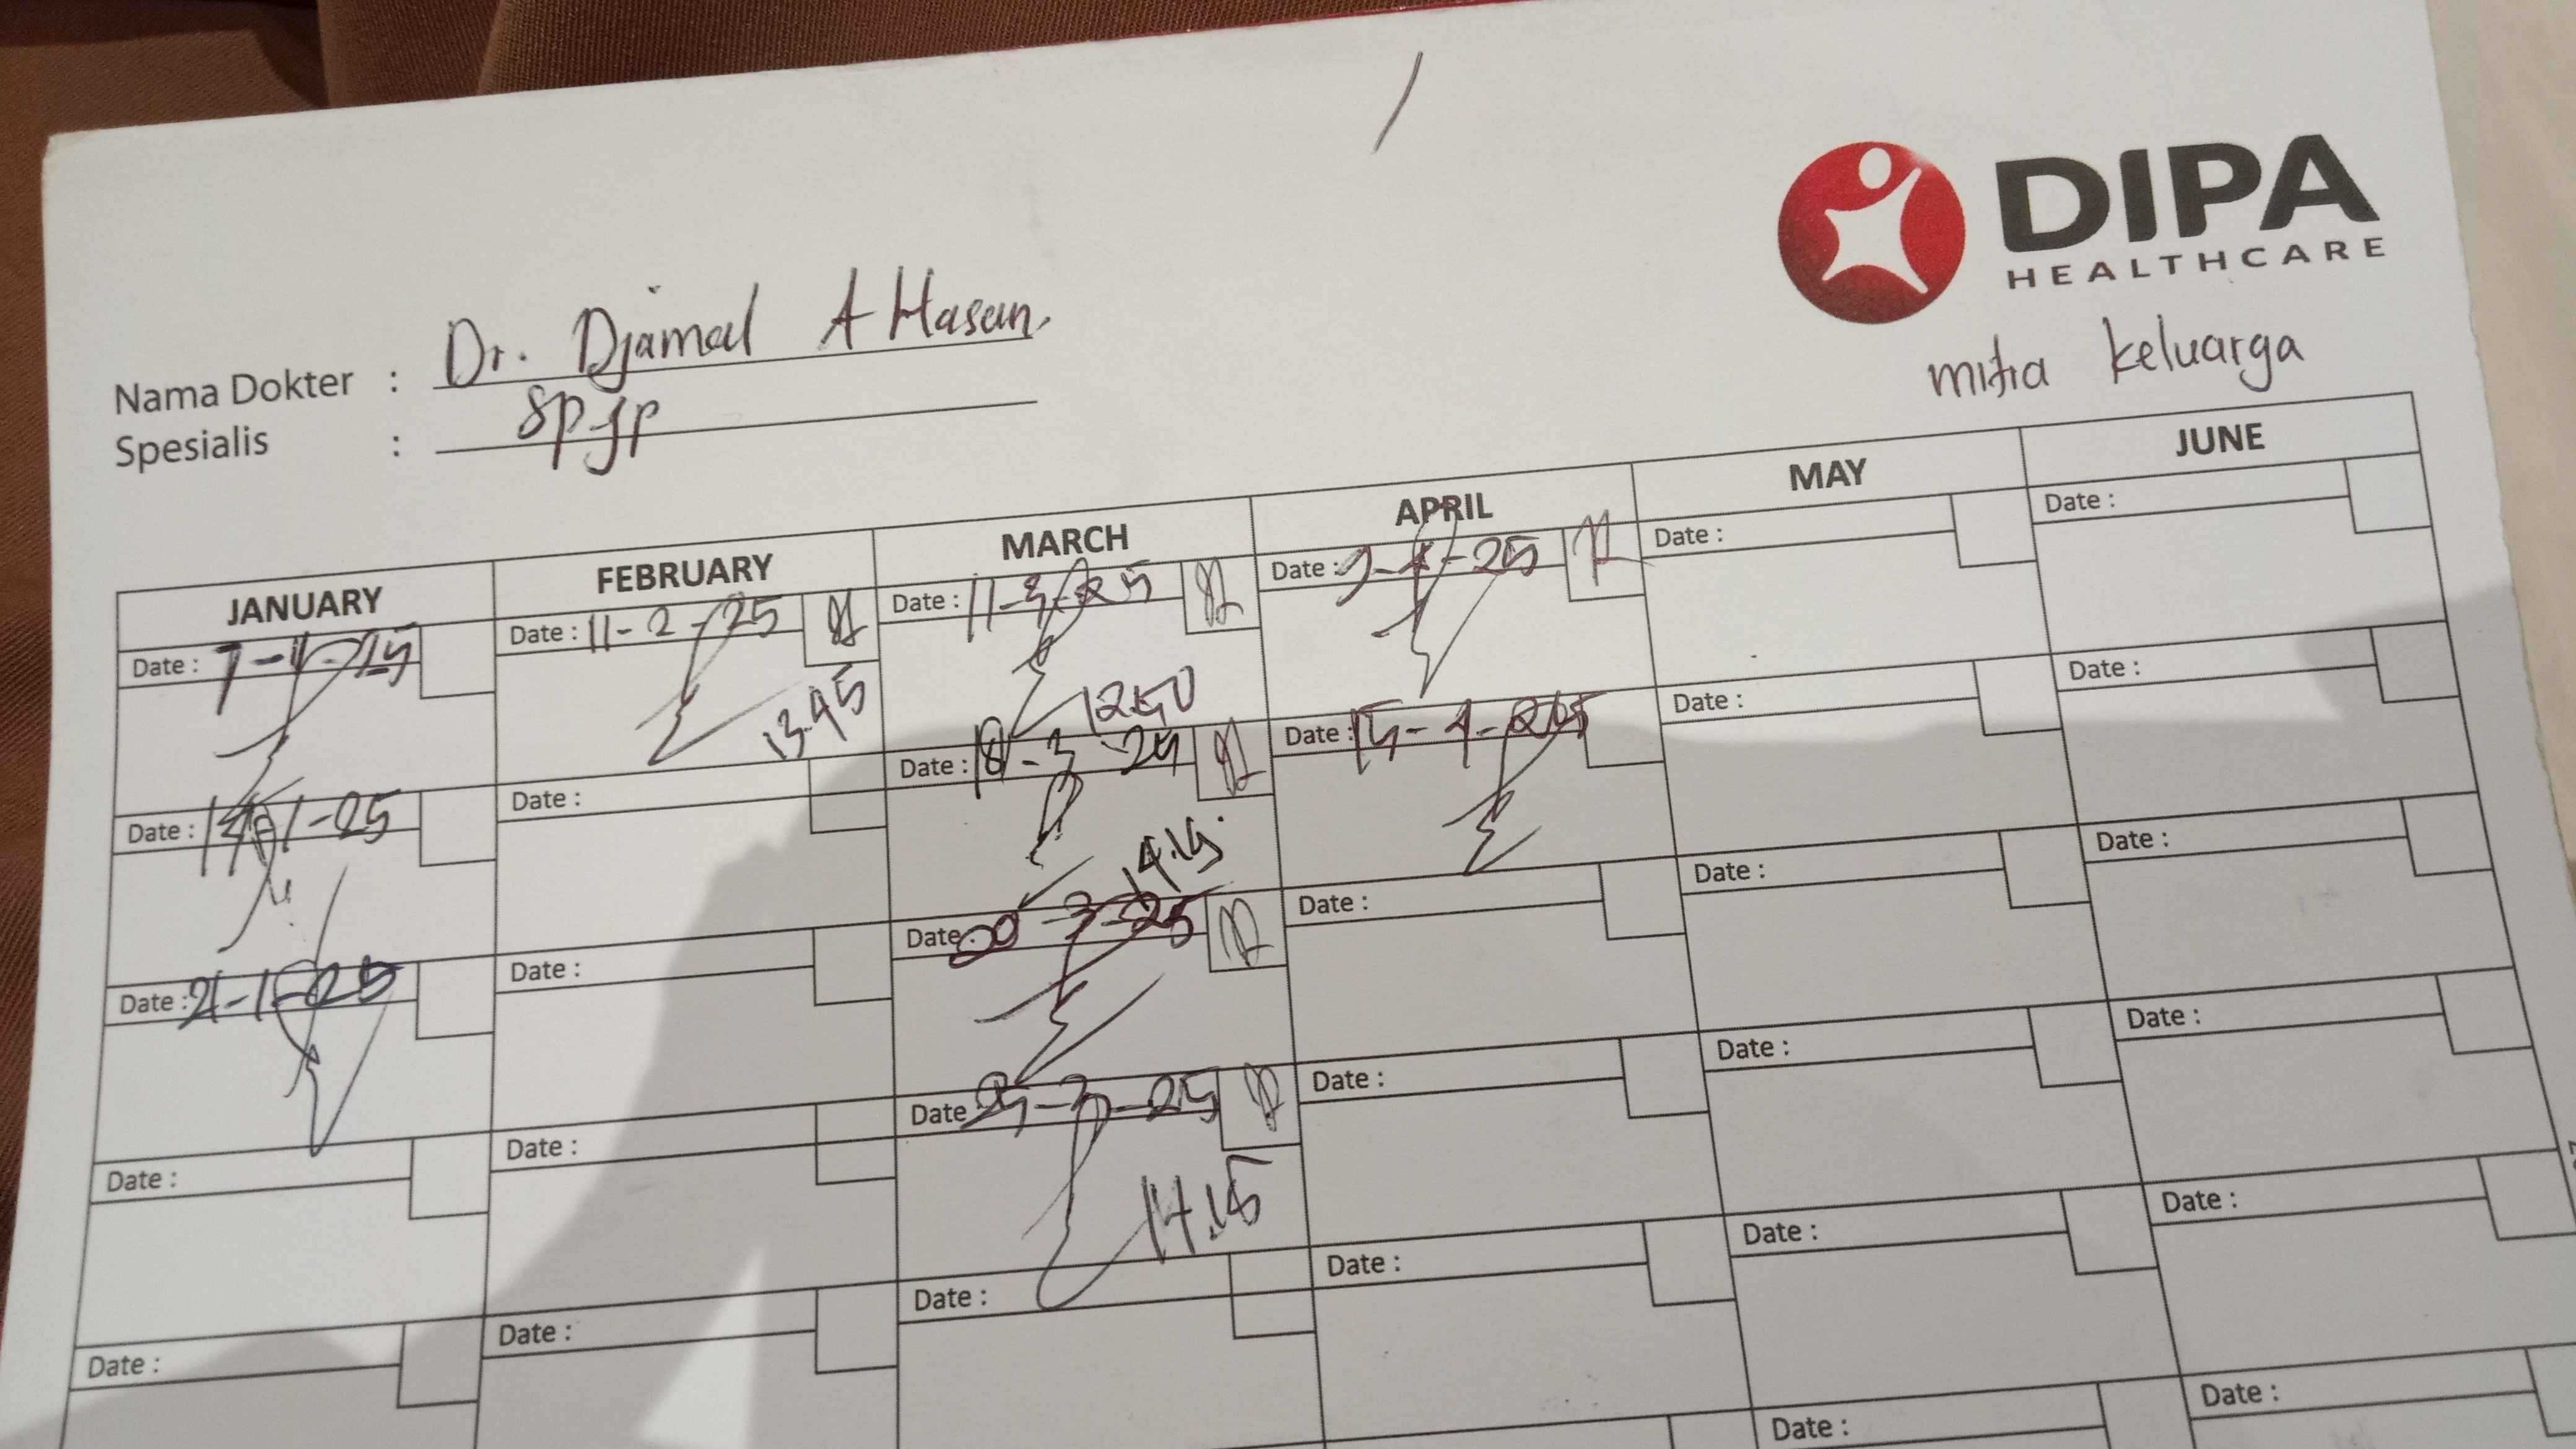 DIPA
HEALTHCARE
mitra keluarga
Nama Dokter : Dr. Djamal A Hasan.
Spesialis : SpJP
JANUARY FEBRUARY MARCH APRIL MAY JUNE
Date : 7-1-25 Date : 11-2-25 Date : 11-3-25 Date : -4-25 Date : Date :
13.45 1250
Date : 14-1-25 Date : Date : 18-3-25 Date : 15-4-25 Date : Date :
14.15
Date : 21-1-25 Date : Date : 20-3-25 Date : Date : Date :
Date : Date : Date 25-3-25 Date : Date : Date :
14.15
Date : Date : Date : Date : Date : Date :
Date : Date :